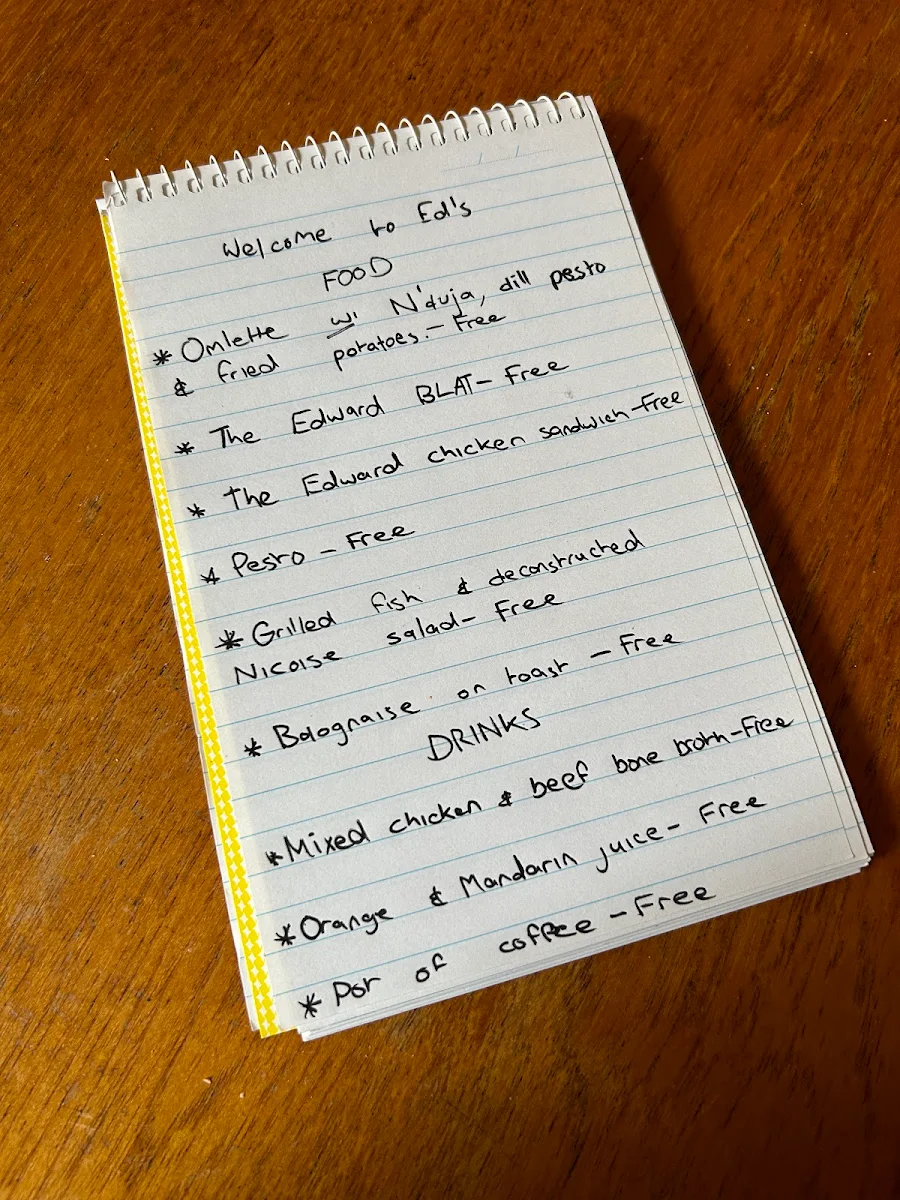 Welcome to Ed's
FOOD
* Omlette w/ N'duja, dill pesto
& fried potatoes - Free
* The Edward BLAT - Free
* The Edward chicken sandwich - Free
* Pesto - Free
* Grilled fish & deconstructed
Nicoise salad - Free
* Bolognaise on toast - Free
DRINKS
* Mixed chicken & beef bone broth - Free
* Orange & Mandarin juice - Free
* Pot of coffee - Free